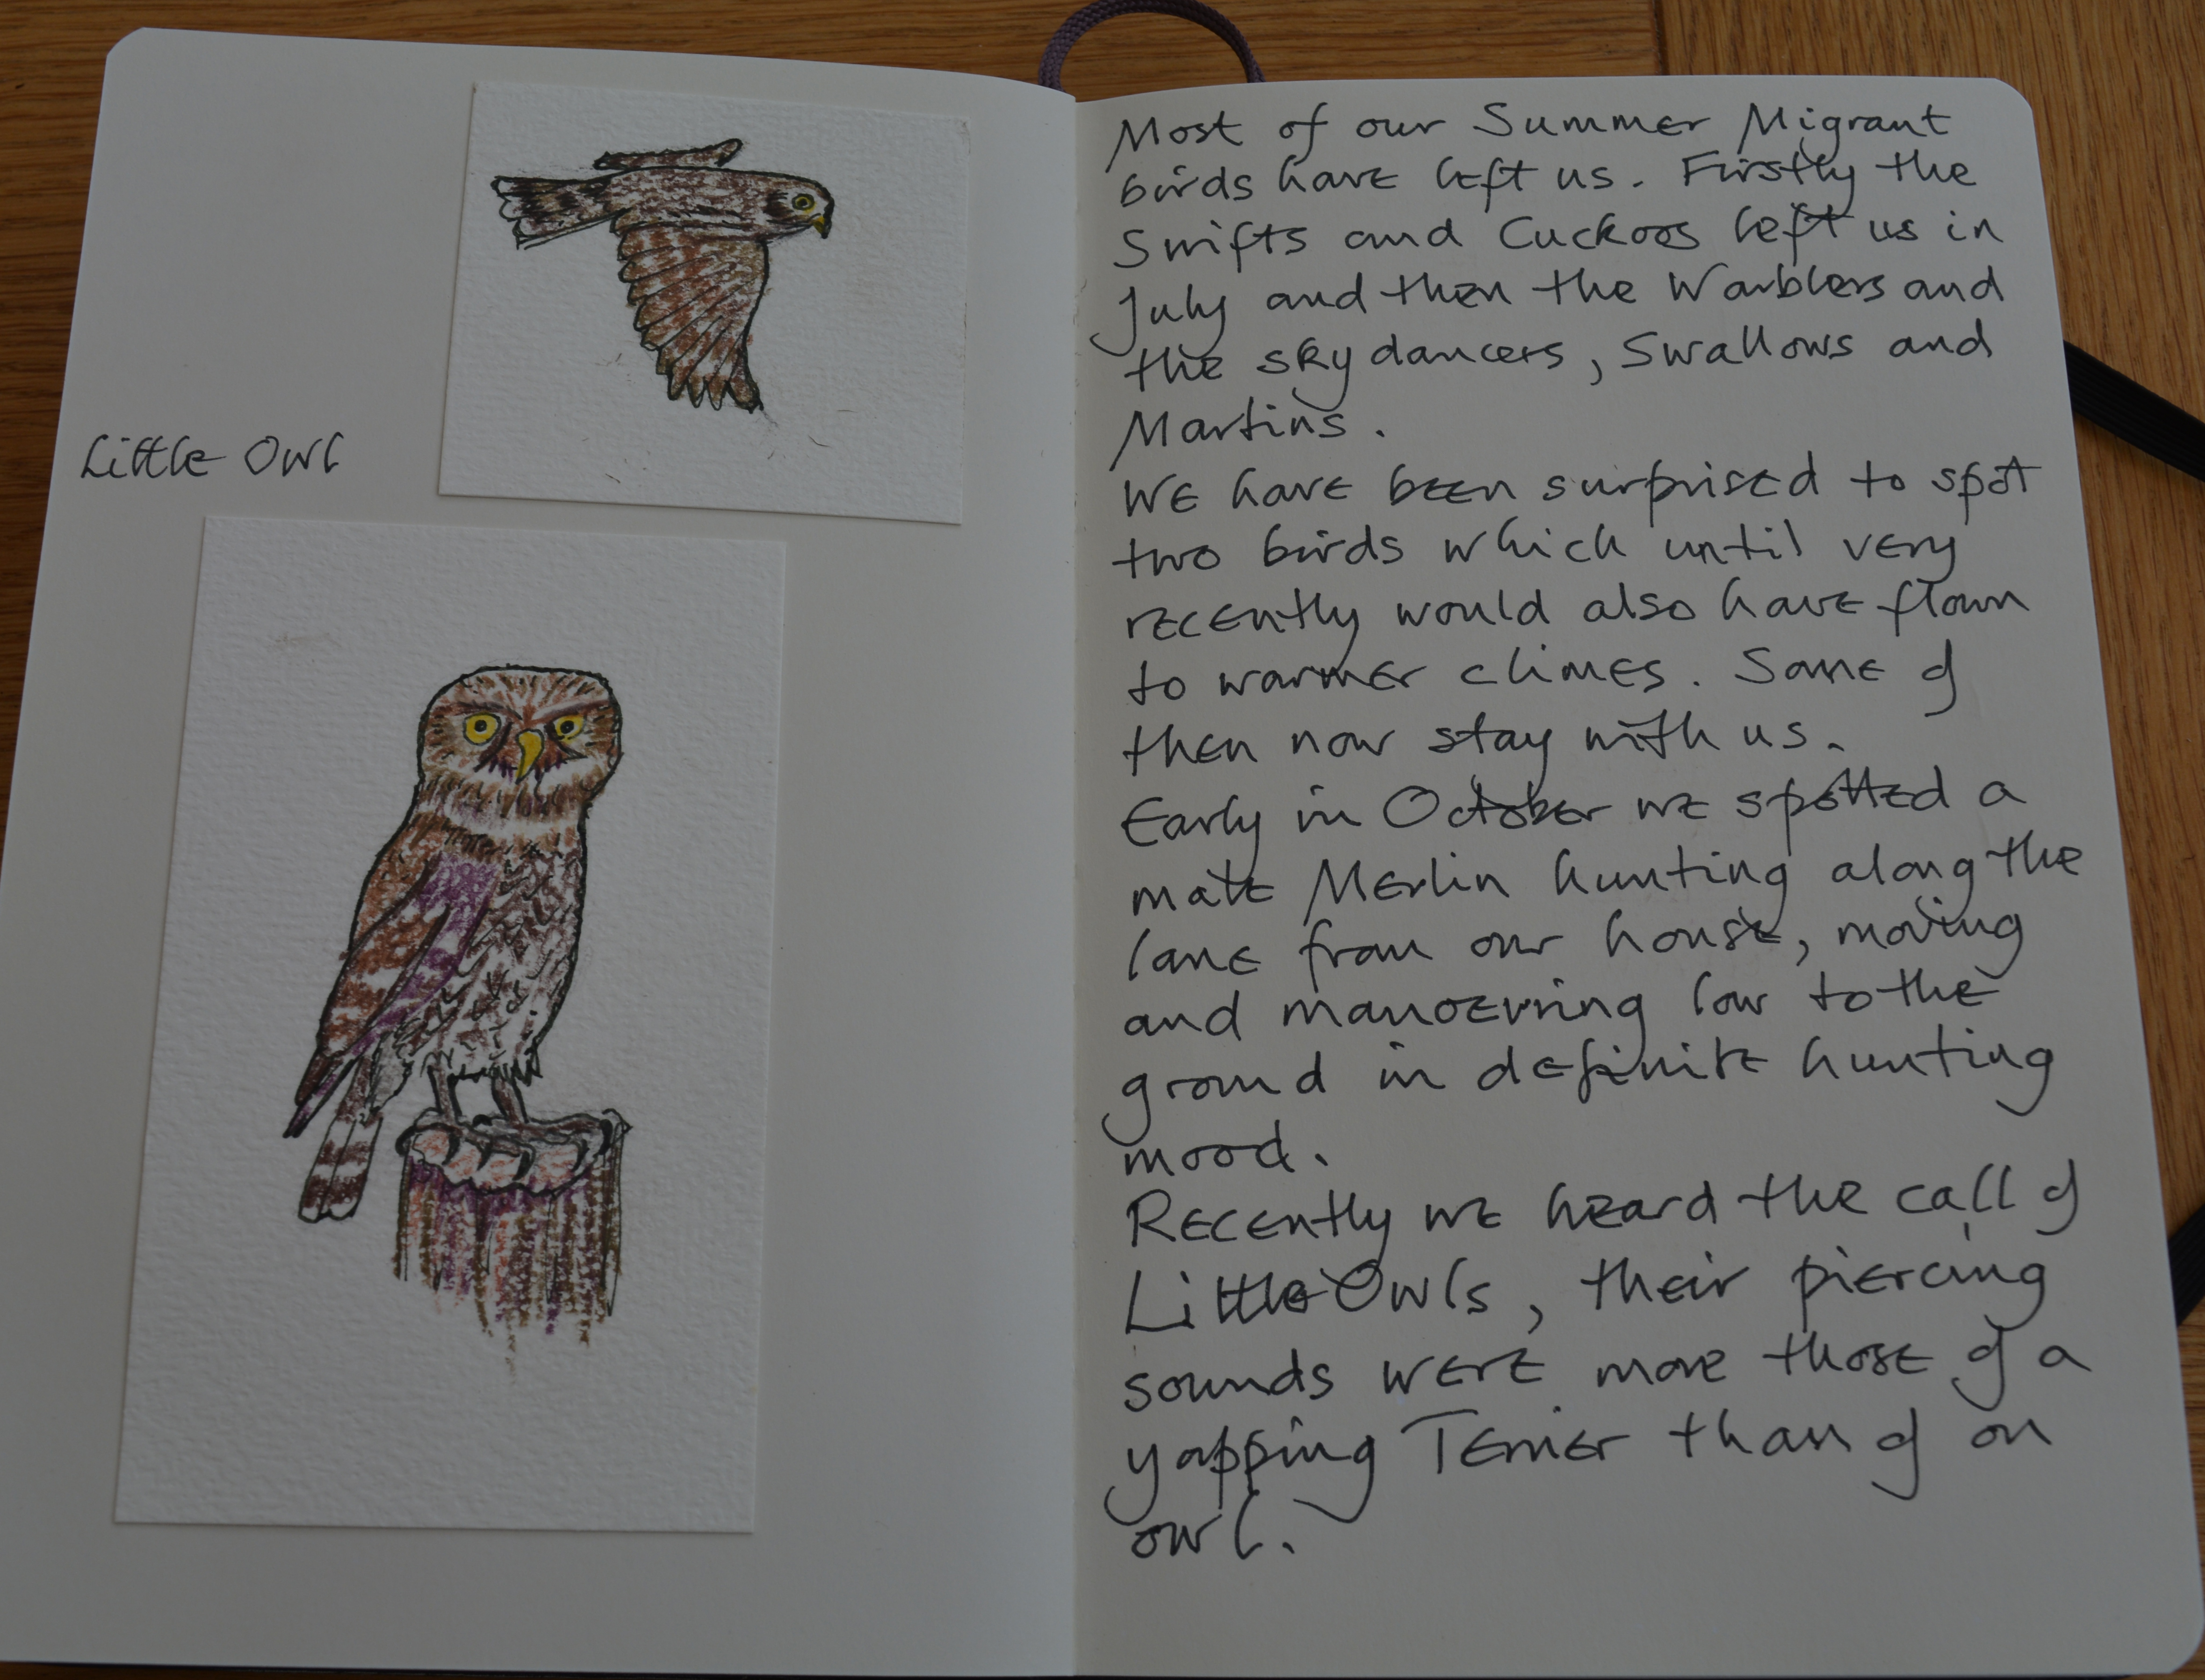 Little Owl
Most of our Summer Migrant
birds have left us. Firstly the
Swifts and Cuckoos left us in
July and then the Warblers and
the sky dancers, Swallows and
Martins.
We have been surprised to spot
two birds which until very
recently would also have flown
to warmer climes. Some of
then now stay with us.
Early in October we spotted a
male Merlin hunting along the
lane from our house, moving
and manoevring low to the
ground in definite hunting
mood.
Recently we heard the call of
Little Owls, their piercing
sounds were more those of a
yapping Terrier than of an
owl.